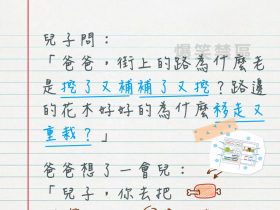 爆笑禁區
兒子問：
「爸爸，街上的路為什麼老
是挖了又補補了又挖？路邊
的花木好好的為什麼移走又
重栽？」
爸爸想了一會兒：
「兒子，你去把